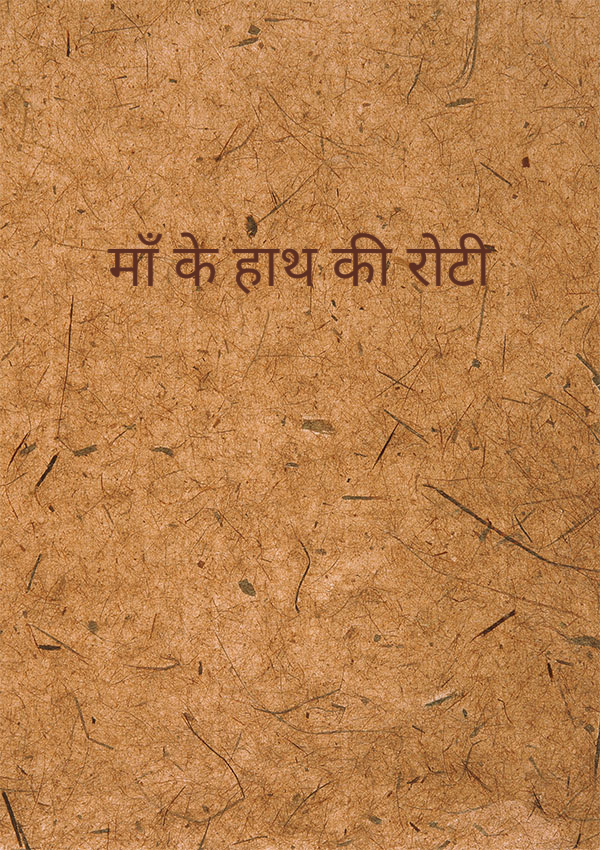 माँ के हाथ की रोटी